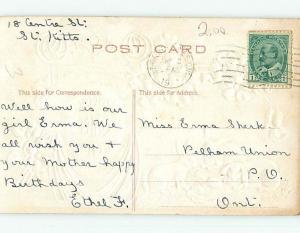 18 Centre St.
St. Kitts.
2.00
POST CARD
This side for Correspondence.
This side for Address.
Well how is our
girl Erma. We
all wish you &
your Mother happy
Birthdays
Ethel F.
Miss Erma Sherk.
Pelham Union
P.O.
Ont.